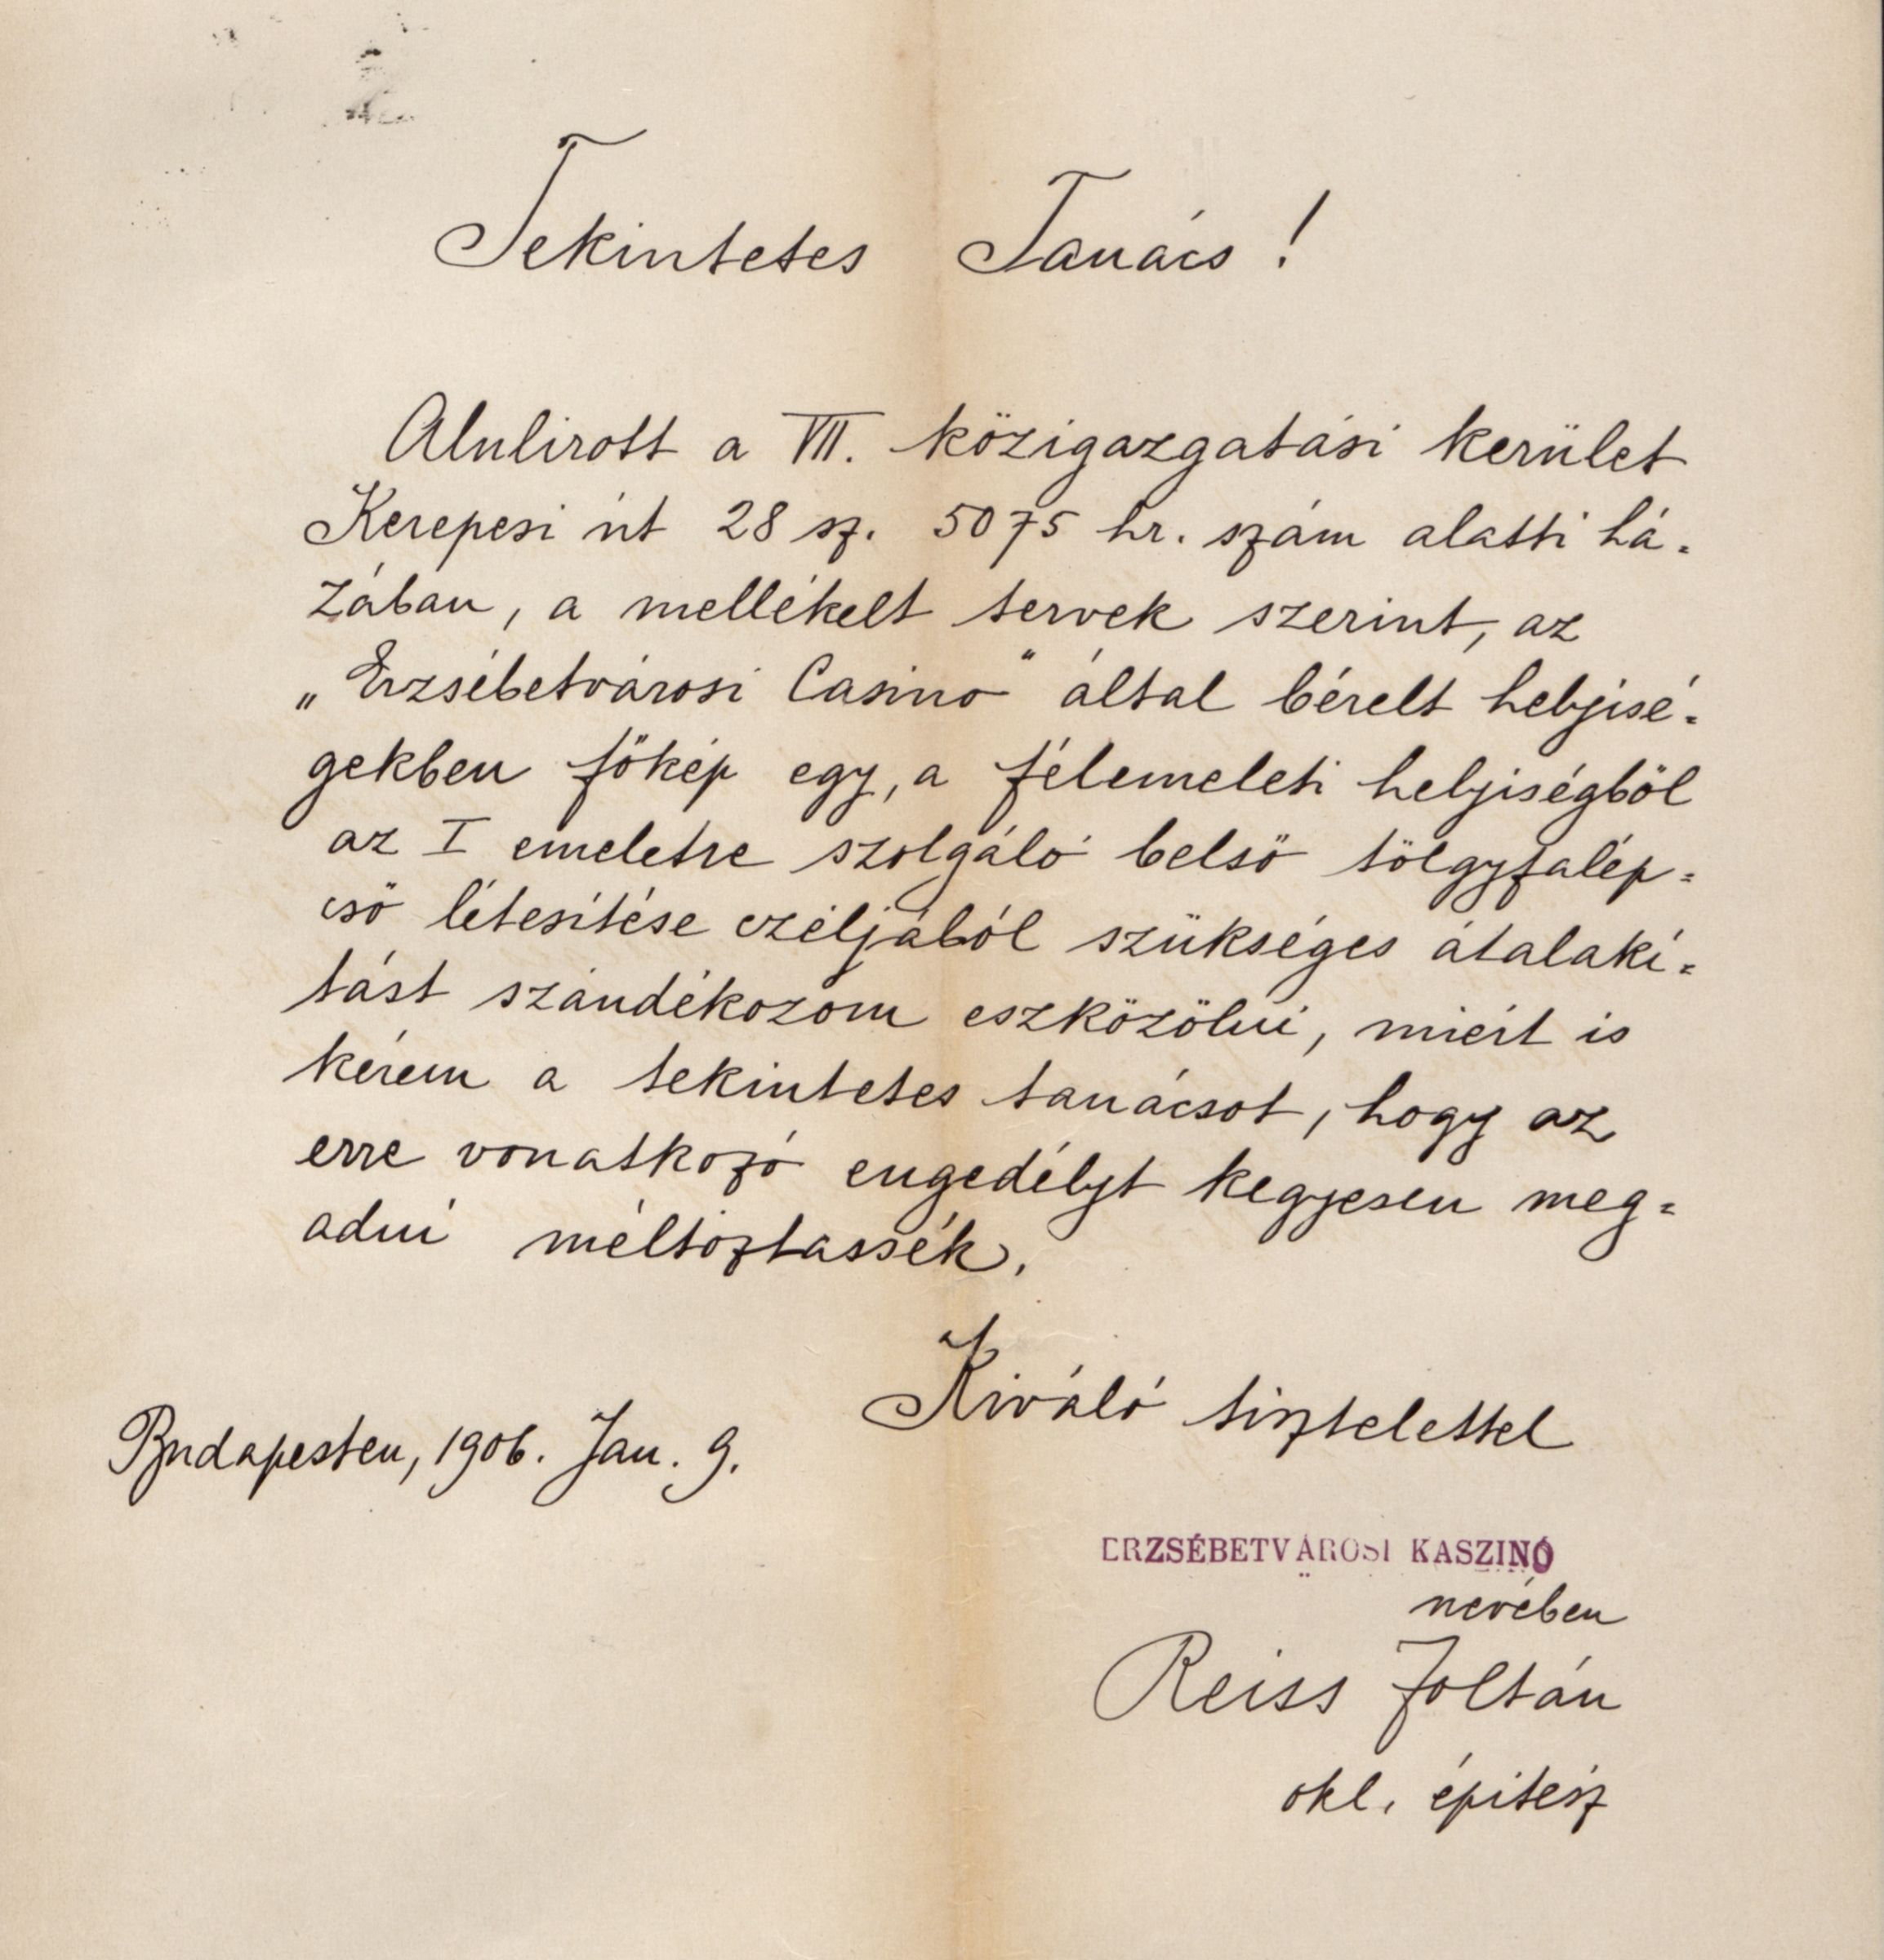 Tekintetes Tanács!
Alulirott a VII. közigazgatási kerület
Kerepesi út 28 sz. 5075 hr. szám alatti há=
zában, a mellékelt tervek szerint, az
„Erzsébetvárosi Casino" által bérelt helyisé=
gekben főkép egy, a félemeleti helyiségből
az I emeletre szolgáló belső tölgyfalép=
cső létesítése czéljából szükséges átalakí=
tást szándékozom eszközölni, miért is
kérem a tekintetes tanácsot, hogy az
erre vonatkozó engedélyt kegyesen meg=
adni méltóztassék.
Kiváló tisztelettel
Budapesten, 1906. Jan. 9.
ERZSÉBETVÁROSI KASZINÓ
nevében
Reiss Zoltán
okl. épitész